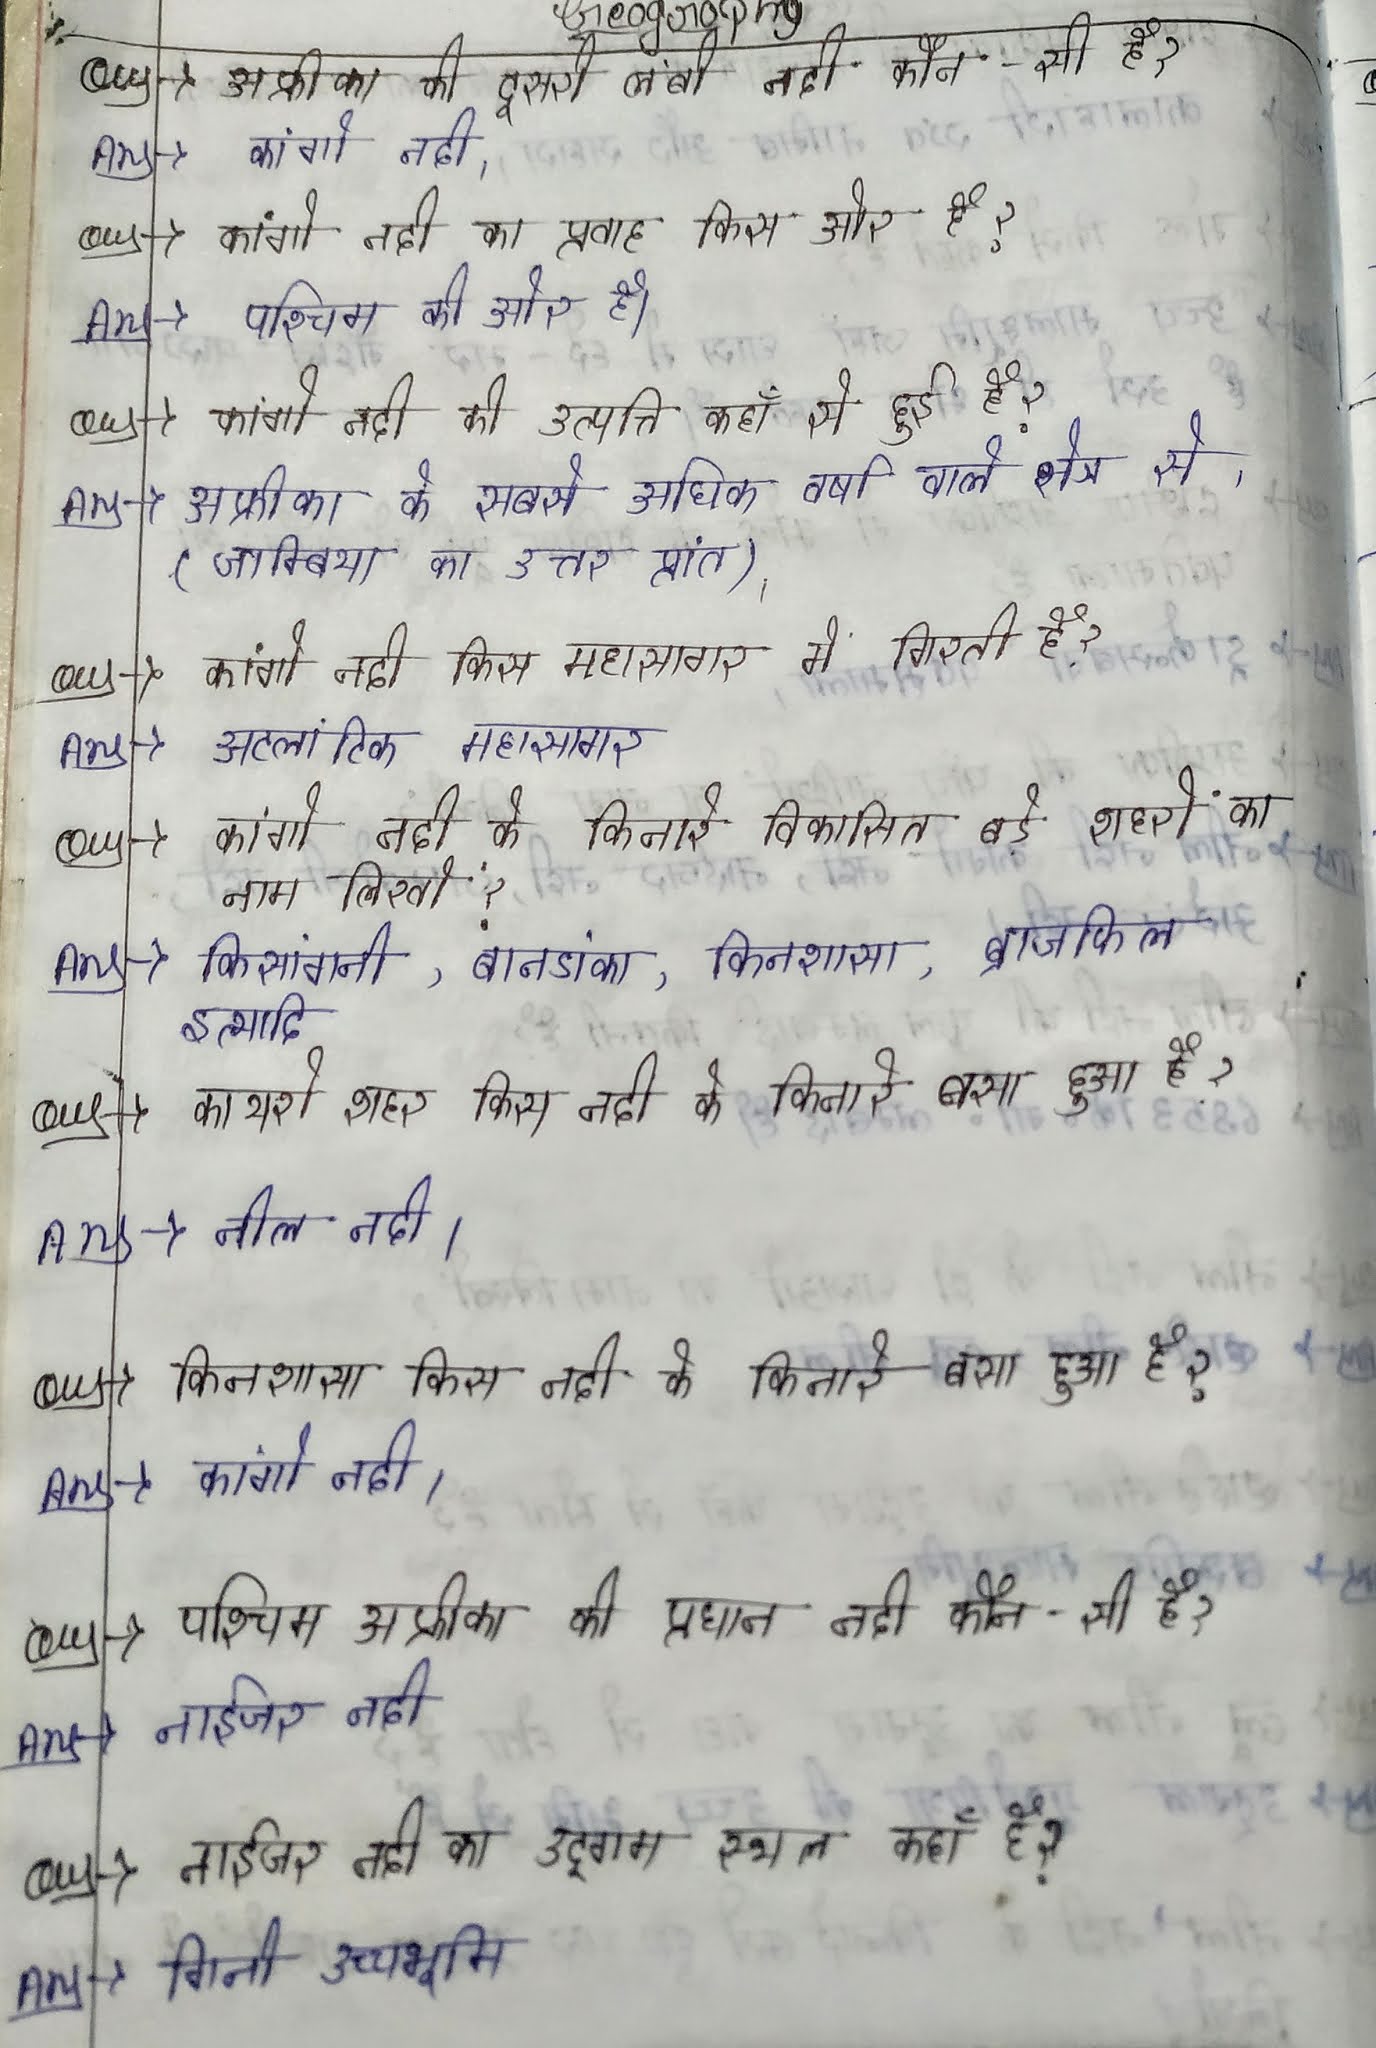 Geography
Que→ अफ्रीका की दूसरी लंबी नदी कौन-सी है?
Ans→ कांगो नदी,
Que→ कांगो नदी का प्रवाह किस ओर है?
Ans→ पश्चिम की ओर है।
Que→ कांगो नदी की उत्पत्ति कहाँ से हुई है?
Ans→ अफ्रीका के सबसे अधिक वर्षा वाले क्षेत्र से,
(जाम्बिया का उत्तर प्रांत),
Que→ कांगो नदी किस महासागर में गिरती है?
Ans→ अटलांटिक महासागर
Que→ कांगो नदी के किनारे विकासित बड़े शहरों का
नाम लिखों?
Ans→ किसांगनी, बानडांका, किनशासा, ब्राजकिल
इत्यादि
Que→ कायरो शहर किस नदी के किनारे बसा हुआ है?
Ans→ नील नदी।
Que→ किनशासा किस नदी के किनारे बसा हुआ है?
Ans→ कांगो नदी।
Que→ पश्चिम अफ्रीका की प्रधान नदी कौन-सी है?
Ans→ नाईजिर नदी
Que→ नाईजिर नदी का उद्गम स्थल कहाँ है?
Ans→ गिनी उच्चभूमि